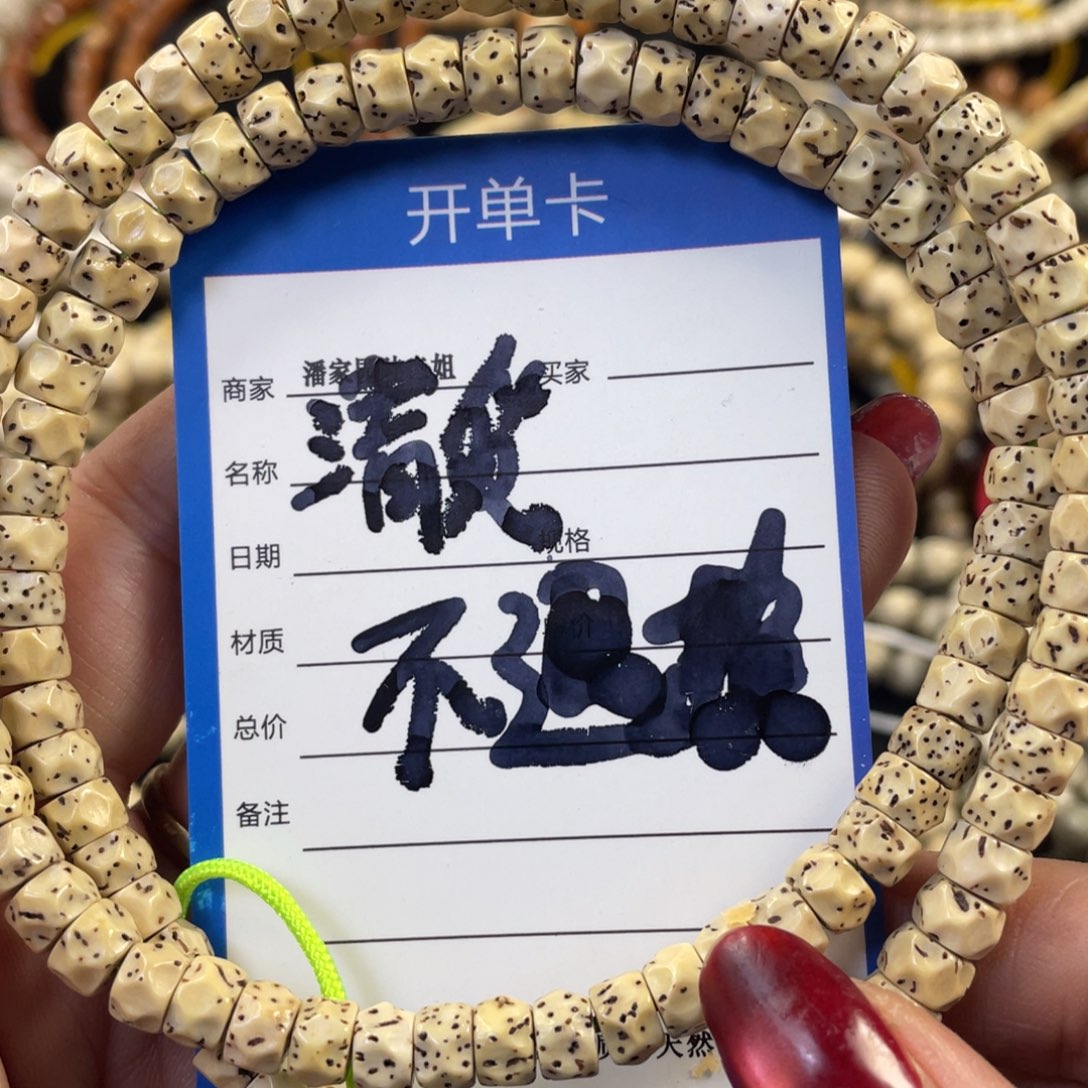 开单卡
商家 潘家 姐 买家
名称
清皮
日期 规格
不退换
材质 价
总价
备注
天然